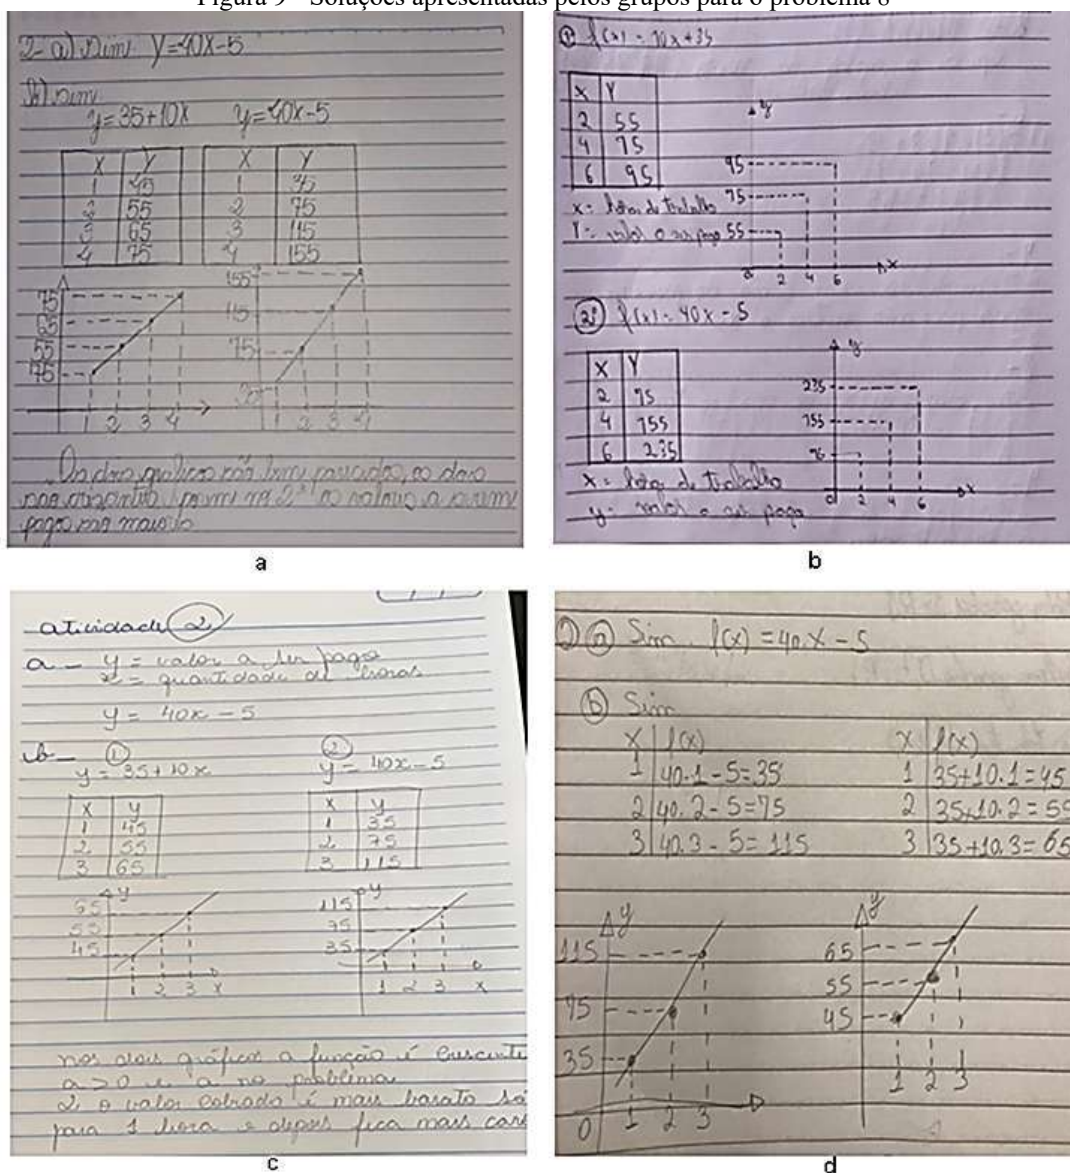 Figura 9 - Soluções apresentadas pelos grupos para o problema 8
2- a) Sim y=40x-5
b) Sim
y=35+10x y=40x-5
X Y X Y
1 45 1 35
2 55 2 75
3 65 3 115
4 75 4 155
75
65
55
1 2 3 4
155
115
75
1 2 3 4
Os dois gráficos são bem parecidos, os dois
são crescentes, porém na 2ª os valores a serem
pagos são maiores
a
① f(x) = 10x+35
X Y
2 55
4 75
6 95
x= de trabalho
Y= valor a ser pago
y
95
75
55
0 2 4 6 x
f(x)=40x-5
X Y
2 75
4 155
6 235
x = de trabalho
y= valor a ser pago
y
235
155
0 2 4 6 x
b
atividade ②
a - y = valor a ser pago
x = quantidade de horas
y = 40x - 5
b- ① ②
y = 35+10x y = 40x-5
x y x y
1 45 1 35
2 55 2 75
3 65 3 115
y
65
55
45
1 2 3 x
y
115
75
35
1 2 3 x
nos dois gráficos a função é crescente
a>0 e a no problema
2 o valor cobrado é mais barato só
para 1 hora e depois fica mais caro
c
② ⓐ Sim f(x) = 40.x - 5
ⓑ Sim
X f(x) X f(x)
1 40.1-5=35 1 35+10.1=45
2 40.2-5=75 2 35+10.2=55
3 40.3-5=115 3 35+10.3=65
y
115
75
35
0 1 2 3
y
65
55
45
1 2 3
d